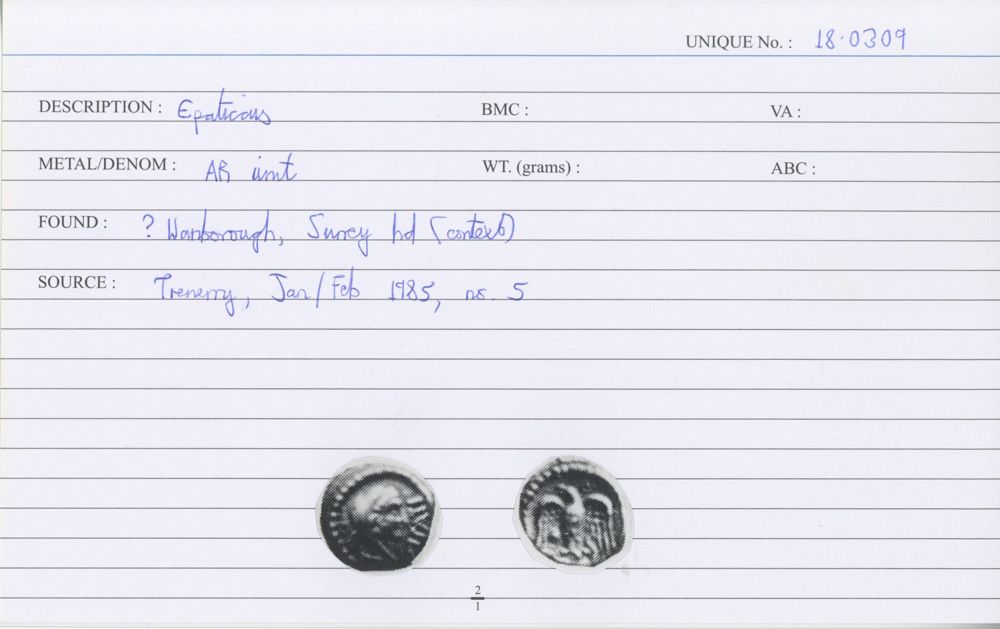 UNIQUE No. : 18.0309
DESCRIPTION : Epaticcus BMC : VA :
METAL/DENOM : AR unit WT. (grams) : ABC :
FOUND : ? Wanborough, Surrey hd (context)
SOURCE : Trenerry, Jan/Feb 1985, no. 5
2
1